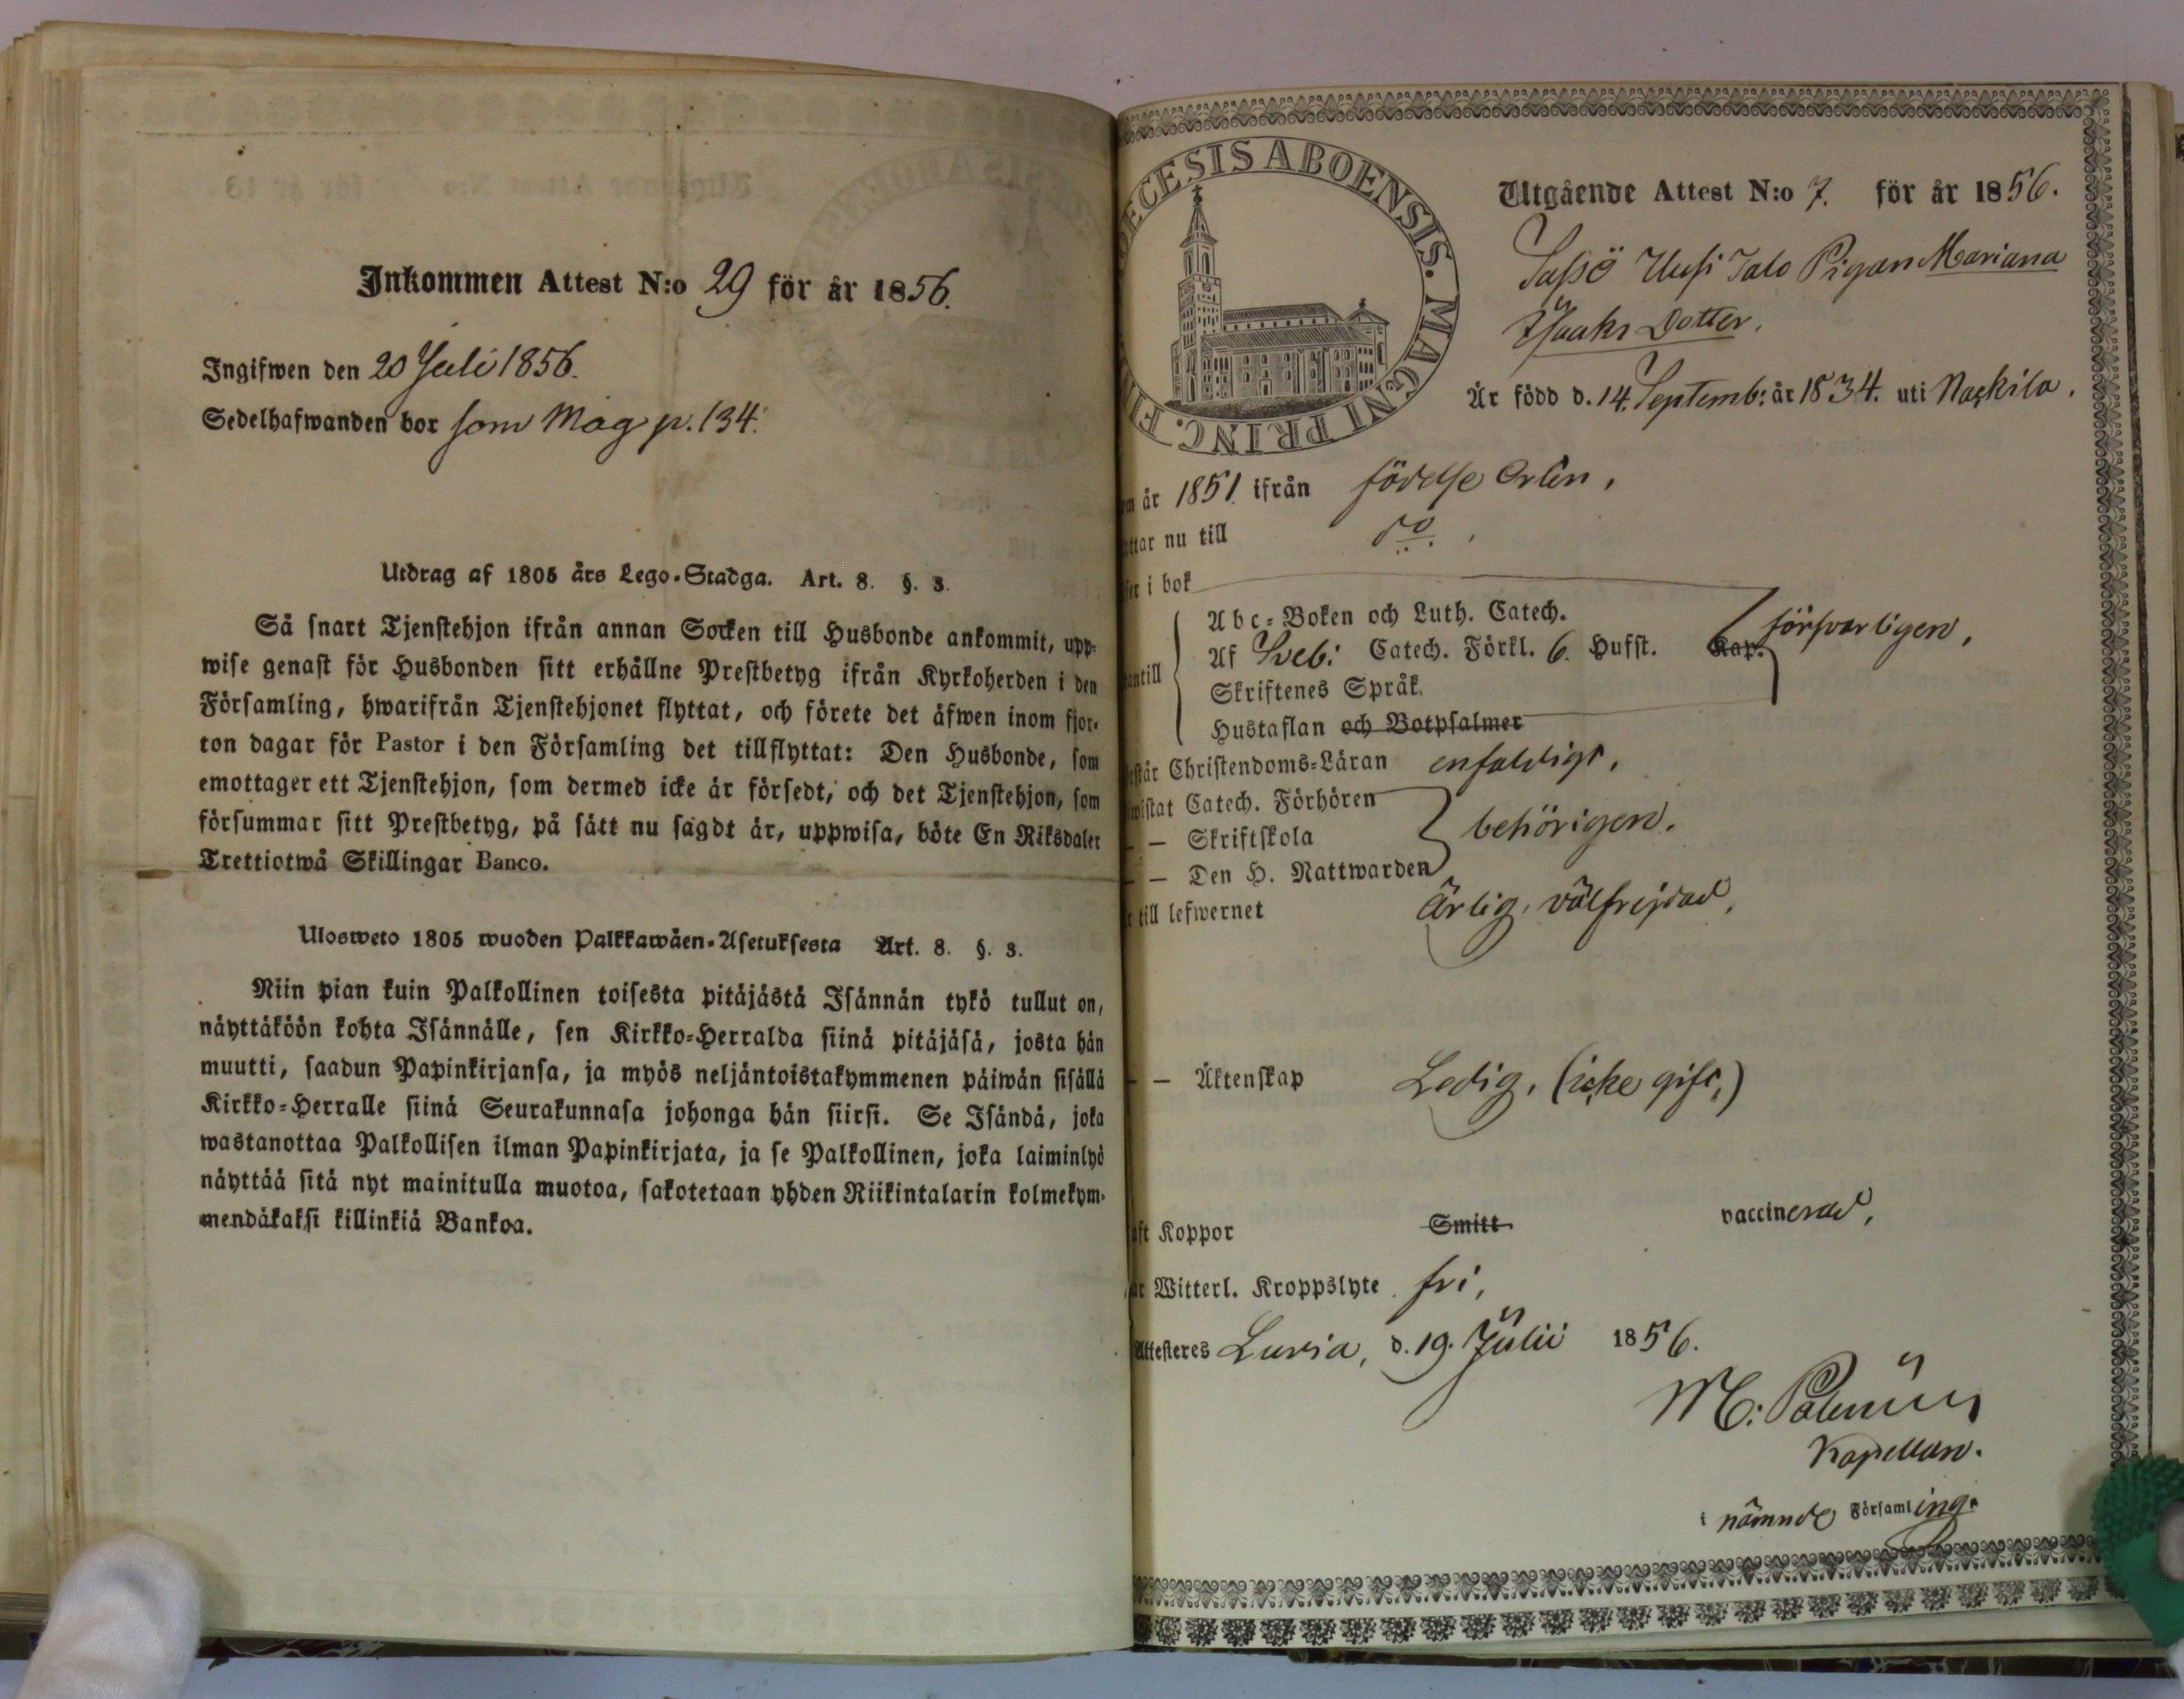 Inkommen Attest N:o 29 för år 1856.
Ingifwen den 20 Juli 1856.
Sedelhafwanden bor som Mag p. 134.
Utdrag af 1805 års Lego-Stadga. Art. 8. §. 3.
Så snart Tjenstehjon ifrån annan Socken till Husbonde ankommit, upp-
wise genast för Husbonden sitt erhållne Prestbetyg ifrån Kyrkoherden i den
Församling, hwarifrån Tjenstehjonet flyttat, och förete det äfwen inom fjor-
ton dagar för Pastor i den Församling det tillflyttat: Den Husbonde, som
emottager ett Tjenstehjon, som dermed icke är försedt, och det Tjenstehjon, som
försummar sitt Prestbetyg, på sätt nu sagdt är, uppwisa, böte En Riksdaler
Trettiotwå Skillingar Banco.
Ulosweto 1805 wuoden Palkkawäen-Asetuksesta Art. 8. §. 3.
Niin pian kuin Palkollinen toisesta pitäjästä Isännän tykö tullut on,
näyttäköön kohta Isännälle, sen Kirkko-Herralda siinä pitäjäsä, josta hän
muutti, saadun Papinkirjansa, ja myös neljäntoistakymmenen päiwän sisällä
Kirkko-Herralle siinä Seurakunnasa johonga hän siirsi. Se Isändä, joka
wastanottaa Palkollisen ilman Papinkirjata, ja se Palkollinen, joka laiminlyö
näyttää sitä nyt mainitulla muotoa, sakotetaan yhden Riikintalarin kolmekym-
mendäkaksi killinkiä Bankoa.
ECESIS ABOENSIS. MAGNI PRINC. FI
Utgående Attest N:o 7. för år 1856.
Sassö Uusi Talo Pigan Mariana
Isaaks Dotter.
Är född d. 14. Septemb: år 1834. uti Nackila.
om år 1851. ifrån födelse Orten,
ttar nu till do.
ser i bok
Abc-Boken och Luth. Catech.
antill Af Sveb: Catech. Förkl. 6. Hufst. Kap. försvarligen,
Skriftenes Språk.
Hustaflan och Botpsalmer
rstår Christendoms-Läran enfaldigt,
wistat Catech. Förhören
— — Skriftskola behörigen.
— — Den H. Nattwarden
r till lefwernet Ärlig, välfrejdad,
— — Äktenskap Ledig, (icke gift,)
aft Koppor Smitt vaccinerad,
ar Witterl. Kroppslyte fri,
Attesteres Luvia, d. 19. Julii 1856.
M: Palmün
Kapellan.
i nämnde Församling.